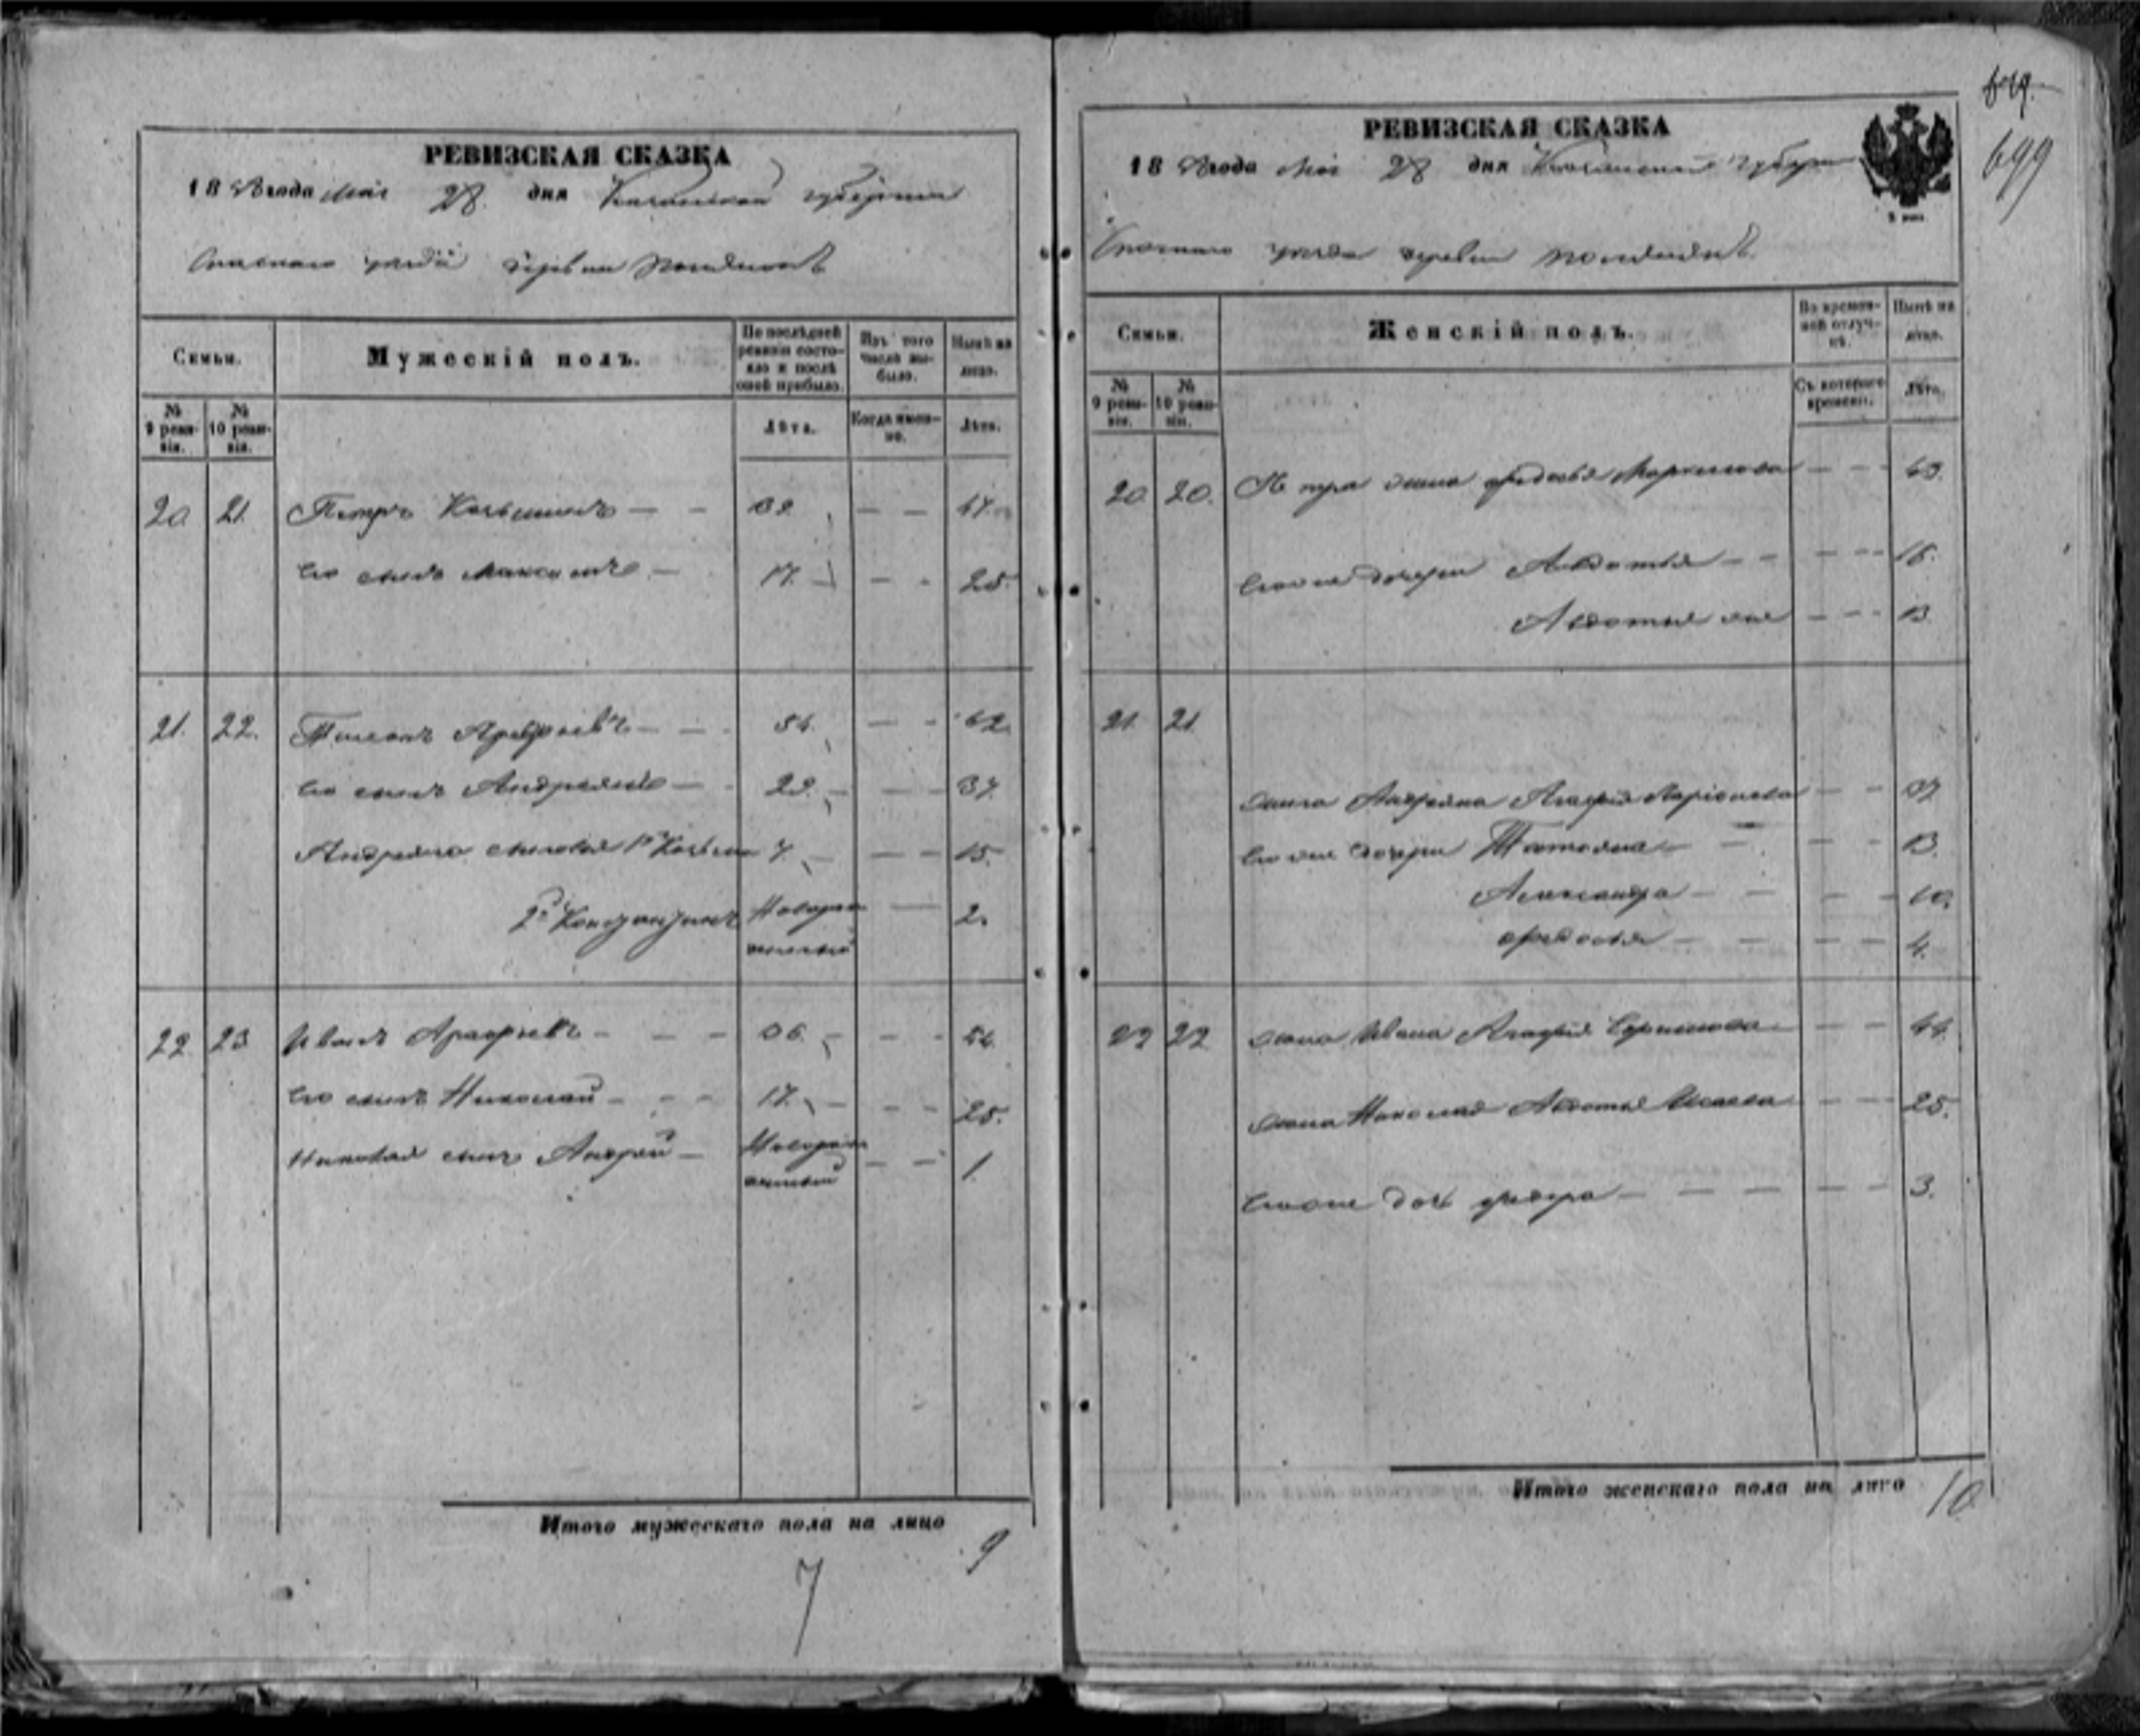 РЕВИЗСКАЯ СКАЗКА
18 года Мая 28 дня Казанской губернии
Спаскаго уезда деревни
Семьи.
Мужескій полъ.
По послѣдней ревизіи состояло и послѣ оной прибыло.
Изъ того числа выбыло.
Нынѣ на лицо.
№ 9 ревизіи.
№ 10 ревизіи.
Лѣта.
Когда именно.
Лѣта.
20 21. Петръ — — — —
Его сынъ Максимъ — 17. — — 25.
21. 22. Арефьевъ — — 54. — — 62.
Его сынъ Андреянъ — 29. — — — 37.
Андреяна сыновья 1й 7. — — — 15.
2й Константинъ Новорожденный — 2.
22 23 Иванъ Арефьевъ — — — — — — 54.
Его сынъ Николай — — — 17. — — — 25.
Николая сынъ Андрей — Новорожденный — — 1.
Итого мужескаго пола на лицо 9
7
699
РЕВИЗСКАЯ СКАЗКА
18 года Мая 28 дня Казанской губерн
Спаскаго уезда деревни
Семьи.
Женскій полъ.
Во временной отлучкѣ.
Нынѣ на лицо.
№ 9 ревизіи.
№ 10 ревизіи.
Съ котораго времени.
Лѣта.
20 20. Петра жена Федосья — —
Его же дочери Авдотья — — — — — 18.
Авдотья же — — — 13
21. 21
жена Андреяна Агафья Ларіонова — — 37
Его же дочери Татьяна — — — — — 13.
Александра — — — — 10.
Федосья — — — — 4.
22 22 жена Ивана Агафья — — 44.
жена Николая Авдотья Исаева — — 25.
Его же дочь — — — — — — 3.
Итого женскаго пола на лицо 10